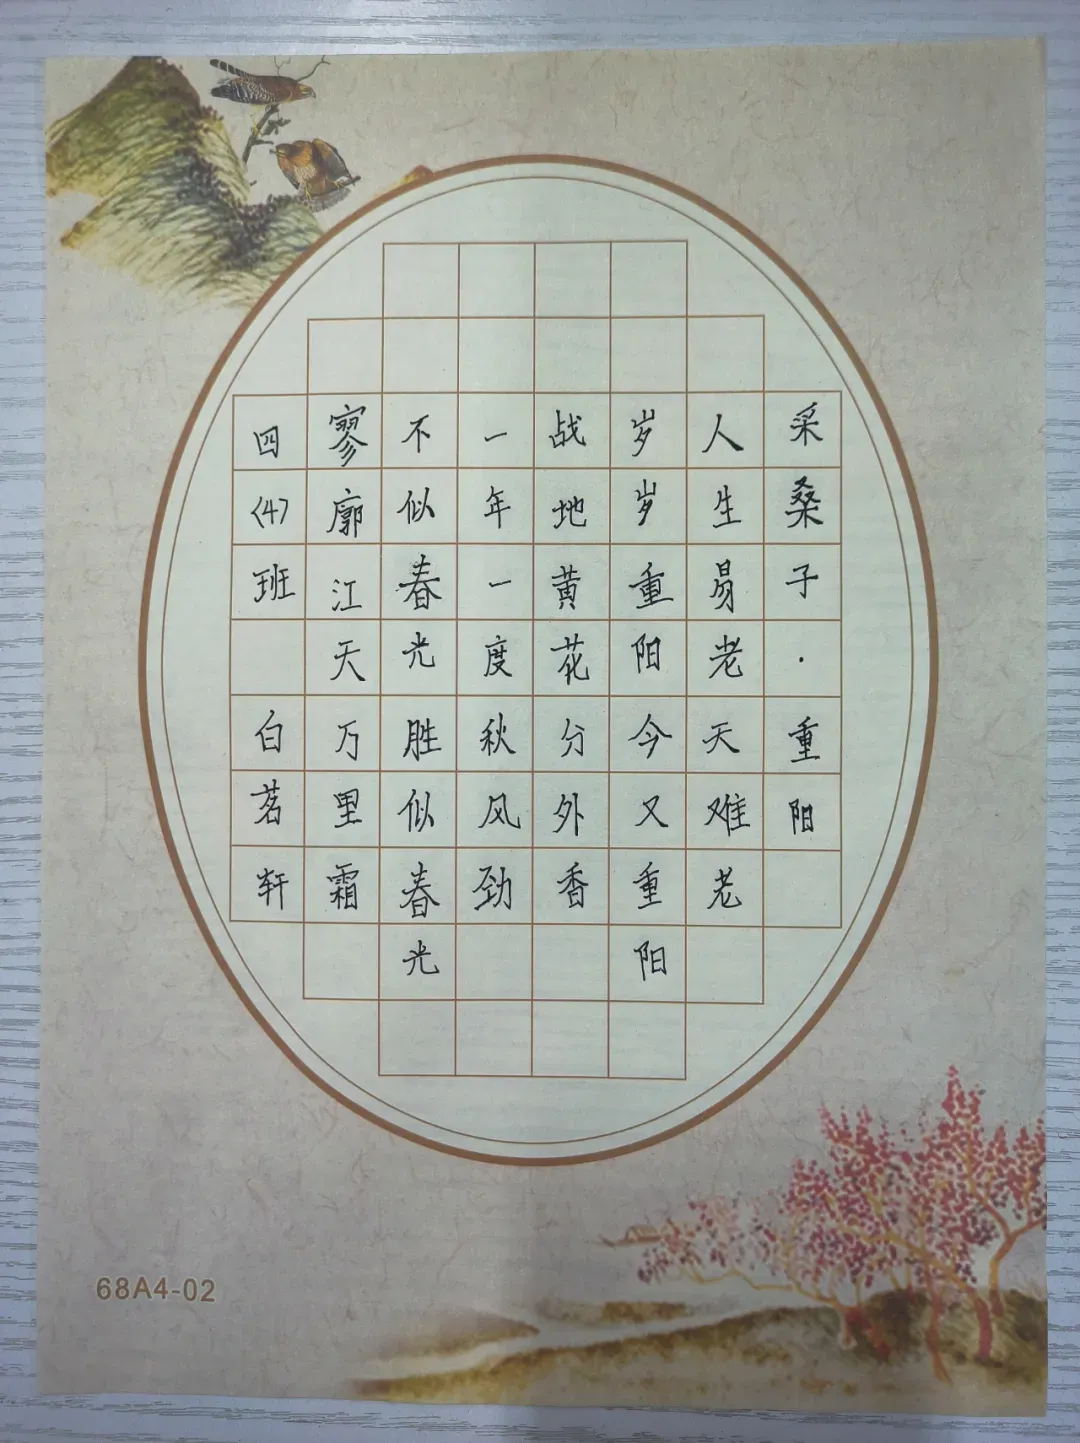 采桑子·重阳
人生易老天难老
岁岁重阳今又重阳
战地黄花分外香
一年一度秋风劲
不似春光胜似春光
寥廓江天万里霜
四(4)班 白茗轩
68A4-02